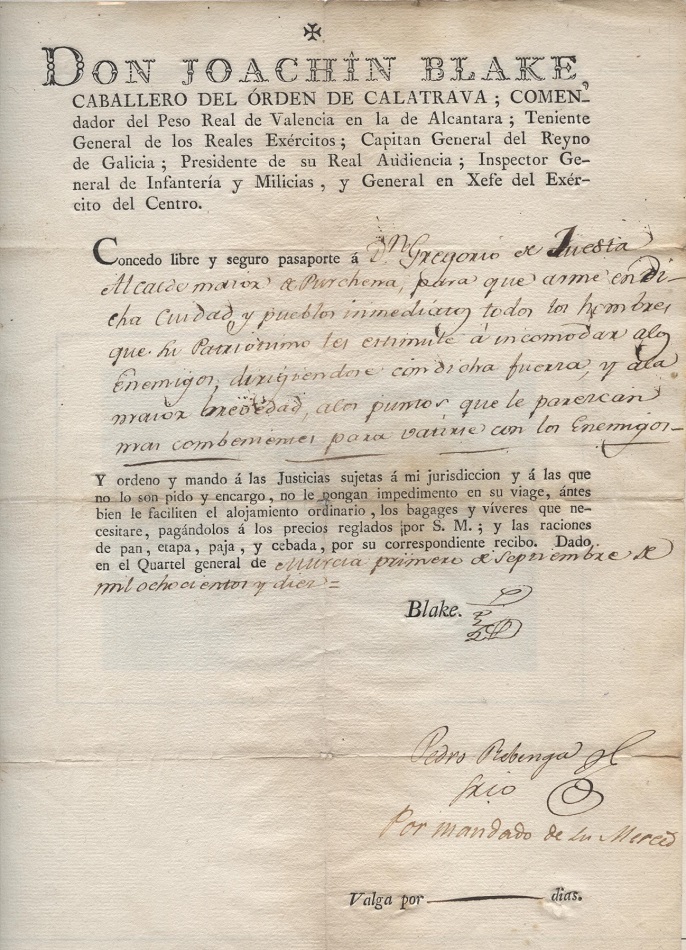 DON JOACHÎN BLAKE,
CABALLERO DEL ÓRDEN DE CALATRAVA ; COMEN-
dador del Peso Real de Valencia en la de Alcantara ; Teniente
General de los Reales Exércitos ; Capitan General del Reyno
de Galicia ; Presidente de su Real Audiencia ; Inspector Ge-
neral de Infantería y Milicias , y General en Xefe del Exér-
cito del Centro.
Concedo libre y seguro pasaporte á Dn Gregorio de
Alcalde maior de Purchena, para que arme en di-
cha Ciudad y pueblos inmediatos todos los hombres
que su Patriotismo les estimule á incomodar a los
Enemigos, dirigiendose con dicha fuerza, y a la
maior brevedad, a los puntos que le parezcan
mas combenientes para vatirse con los Enemigos
Y ordeno y mando á las Justicias sujetas á mi jurisdiccion y á las que
no lo son pido y encargo , no le pongan impedimento en su viage, ántes
bien le faciliten el alojamiento ordinario , los bagages y víveres que ne-
cesitare, pagándolos á los precios reglados por S. M. ; y las raciones
de pan, etapa, paja, y cebada, por su correspondiente recibo. Dado
en el Quartel general de Murcia primero de Septiembre de
mil ochocientos y diez=
Blake.
Pedro
Por mandado de su Merced
Valga por dias.